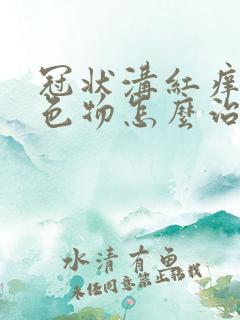 冠状溝紅痒
色物怎麽治
水清有魚
未经同意禁止转载